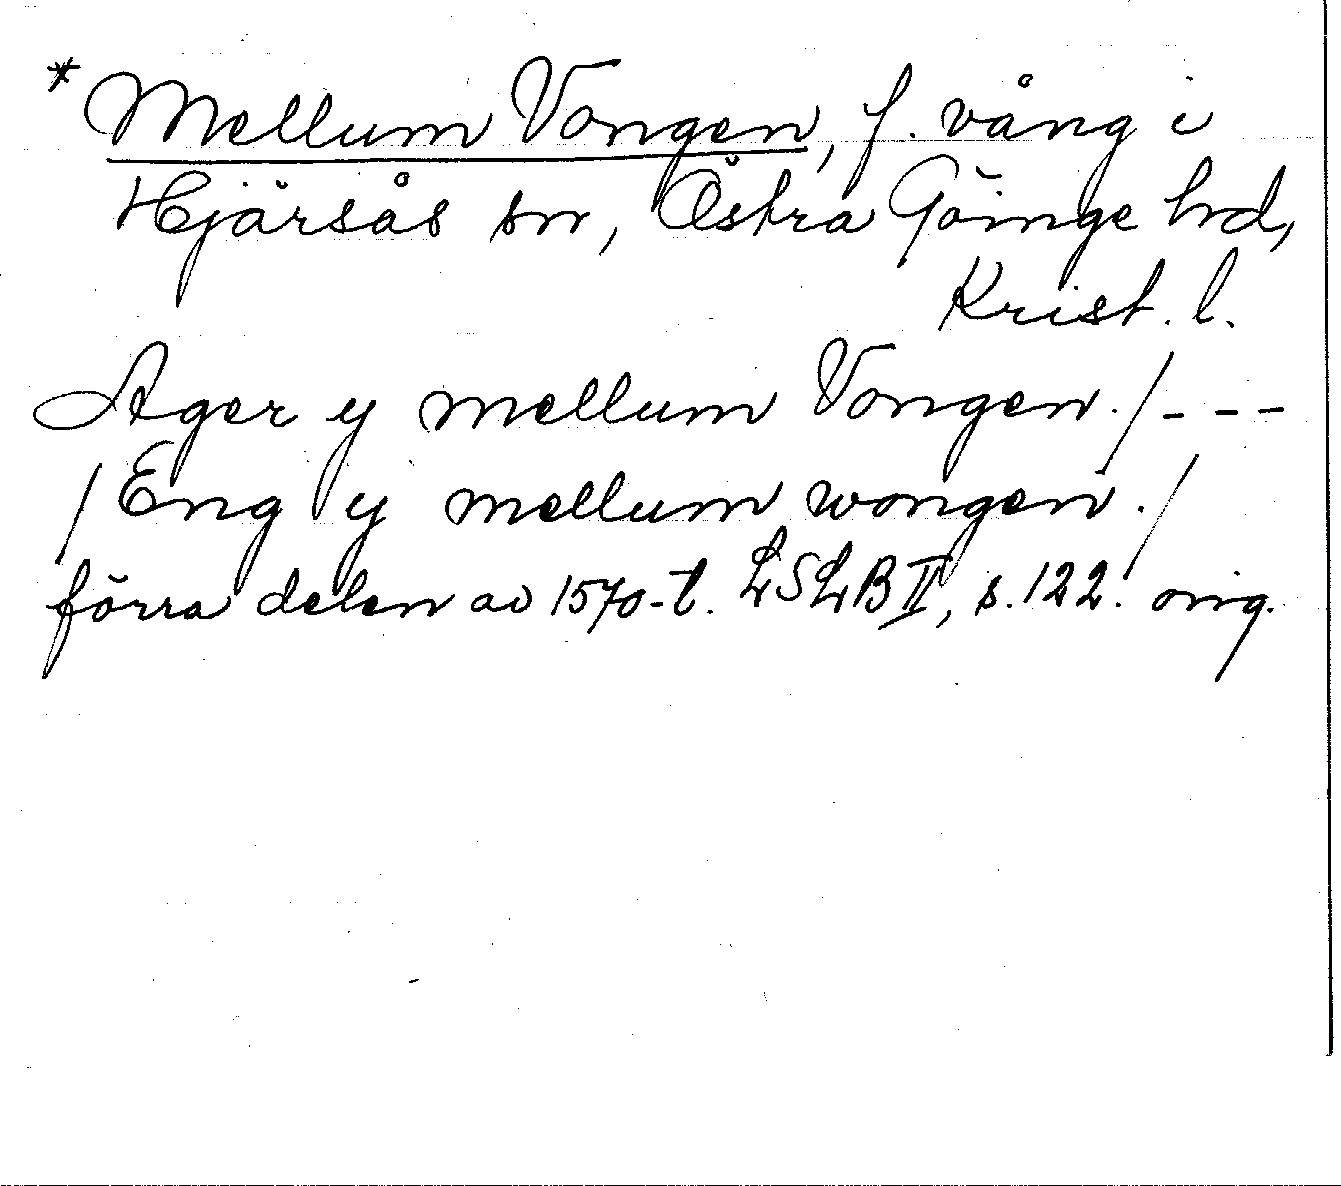 *Mellum Vongen, f. vång i
Hjärsås sn, Östra Göinge hd,
Krist. l.
Ager y mellum Vongen./---
/Eng y mellum wongen./
förra delen av 1570-t. LSLB II, s. 122. orig.